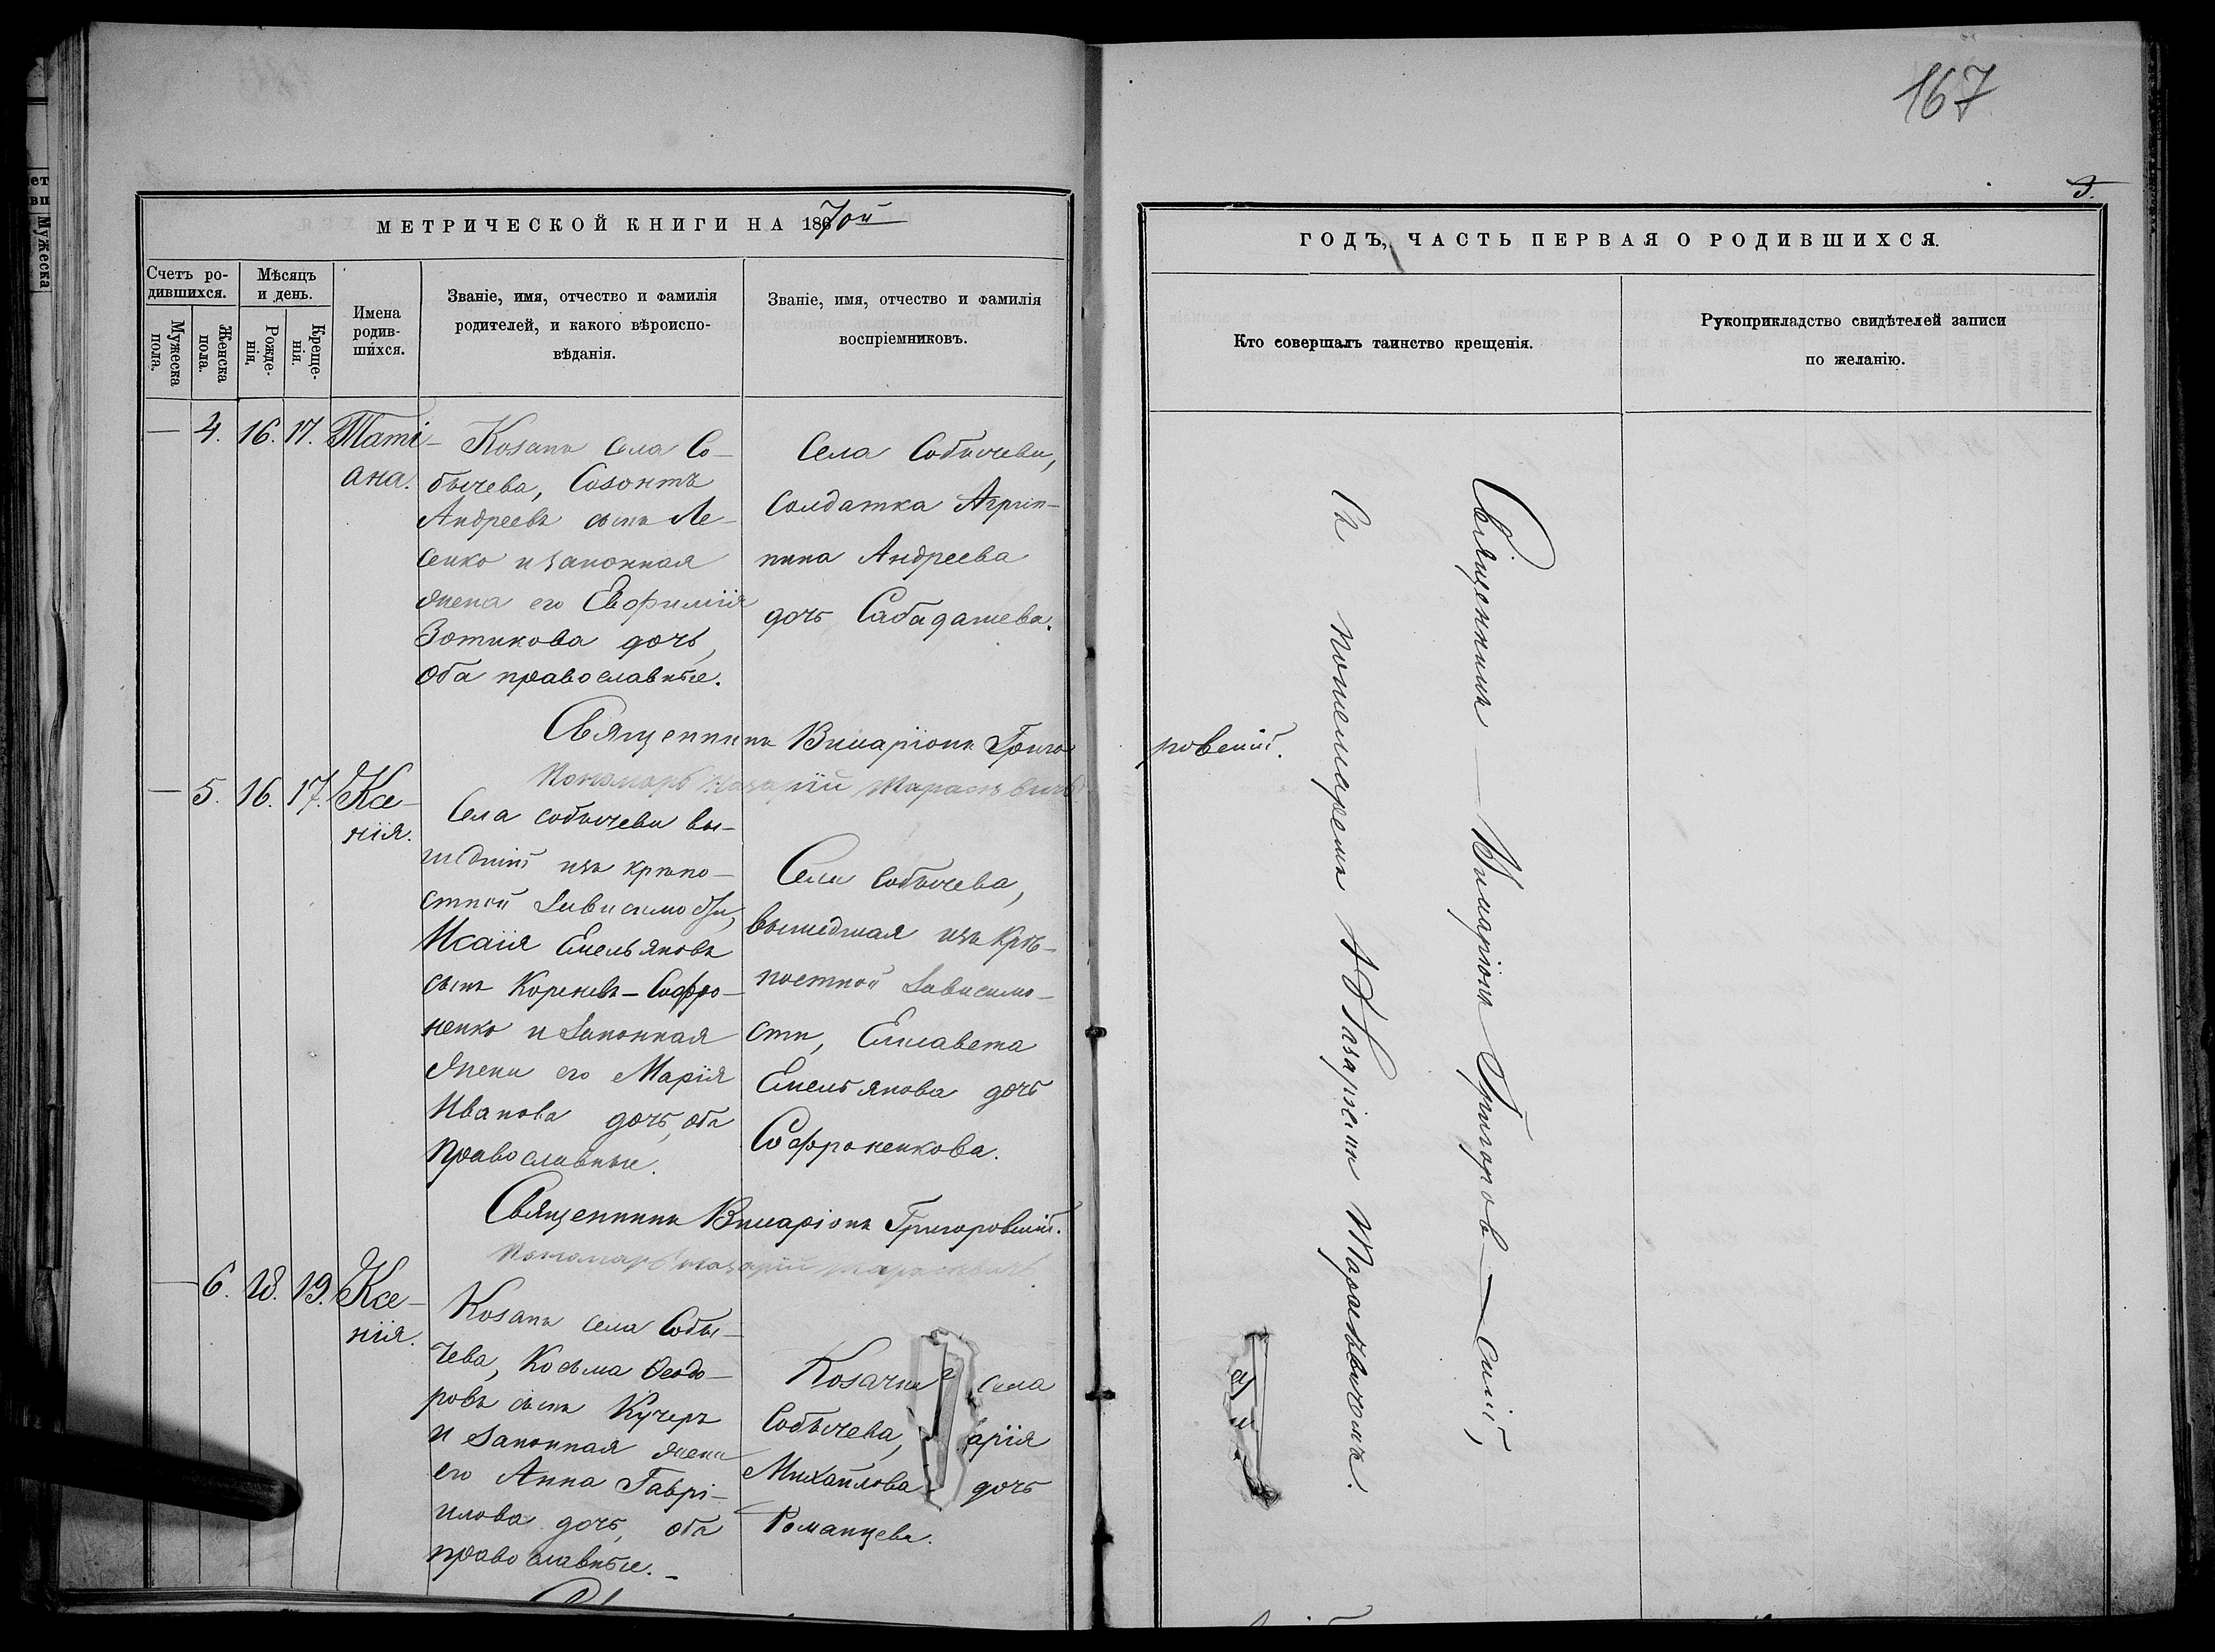 167
3.
МЕТРИЧЕСКОЙ КНИГИ НА 1867ой
ГОДЪ, ЧАСТЬ ПЕРВАЯ О РОДИВШИХСЯ.
Счетъ ро-
дившихся.
Мужеска
пола.
Женска
пола.
Мѣсяцъ
и день.
Рожде-
нія.
Креще-
нія.
Имена
родив-
шихся.
Званіе, имя, отчество и фамилія
родителей, и какого вѣроиспо-
вѣданія.
Званіе, имя, отчество и фамилія
воспріемниковъ.
Кто совершалъ таинство крещенія.
Рукоприкладство свидѣтелей записи
по желанію.
— 4. 16. 17. Таті-
ана.
Козакъ села Со-
бычева, Созонтъ
Андреевъ сынъ Ле-
сенко и законная
жена его Евфимія
Зотикова дочь,
оба православные.
Села Собычева,
солдатка Агрип-
пина Андреева
дочь Сабадашева.
Священникъ Виларіонъ Григо
ровскій.
Пономарь Назарій Тарасевичъ
— 5. 16. 17. Ксе-
нія.
Села Собычева вы-
шедшій изъ крѣпо-
стной зависимости,
Исаія Емельяновъ
сынъ Кореневъ-Софро-
ненко и законная
жена его Марія
Иванова дочь, оба
православные.
Села Собычева,
вышедшая изъ крѣ-
постной зависимо-
сти, Елисавета
Емельянова дочь
Софроненкова.
Священникъ Виларіонъ Григоровскій.
Пономарь Назарій Тарасевичъ
— 6. 18. 19. Ксе-
нія.
Козакъ села Собы-
чева, Косьма Ѳеодо-
ровъ сынъ Кучеръ
и законная жена
его Анна Гаврі-
илова дочь, оба
православные.
Козачка села
Собычева, арія
Михайлова дочь
Романцева.
Священникъ — Виларіонъ Григоров — скій,
Съ пономаремъ Назаріемъ Тарасевичемъ.